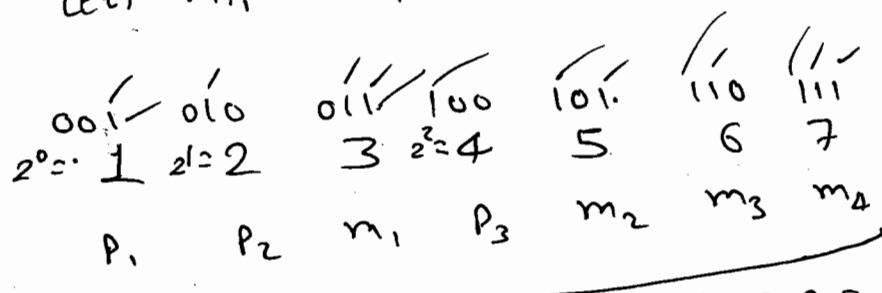 001 010 011 100 101 110 111
2⁰= 1 2¹= 2 3 2²= 4 5 6 7
P₁ P₂ m₁ P₃ m₂ m₃ m₄